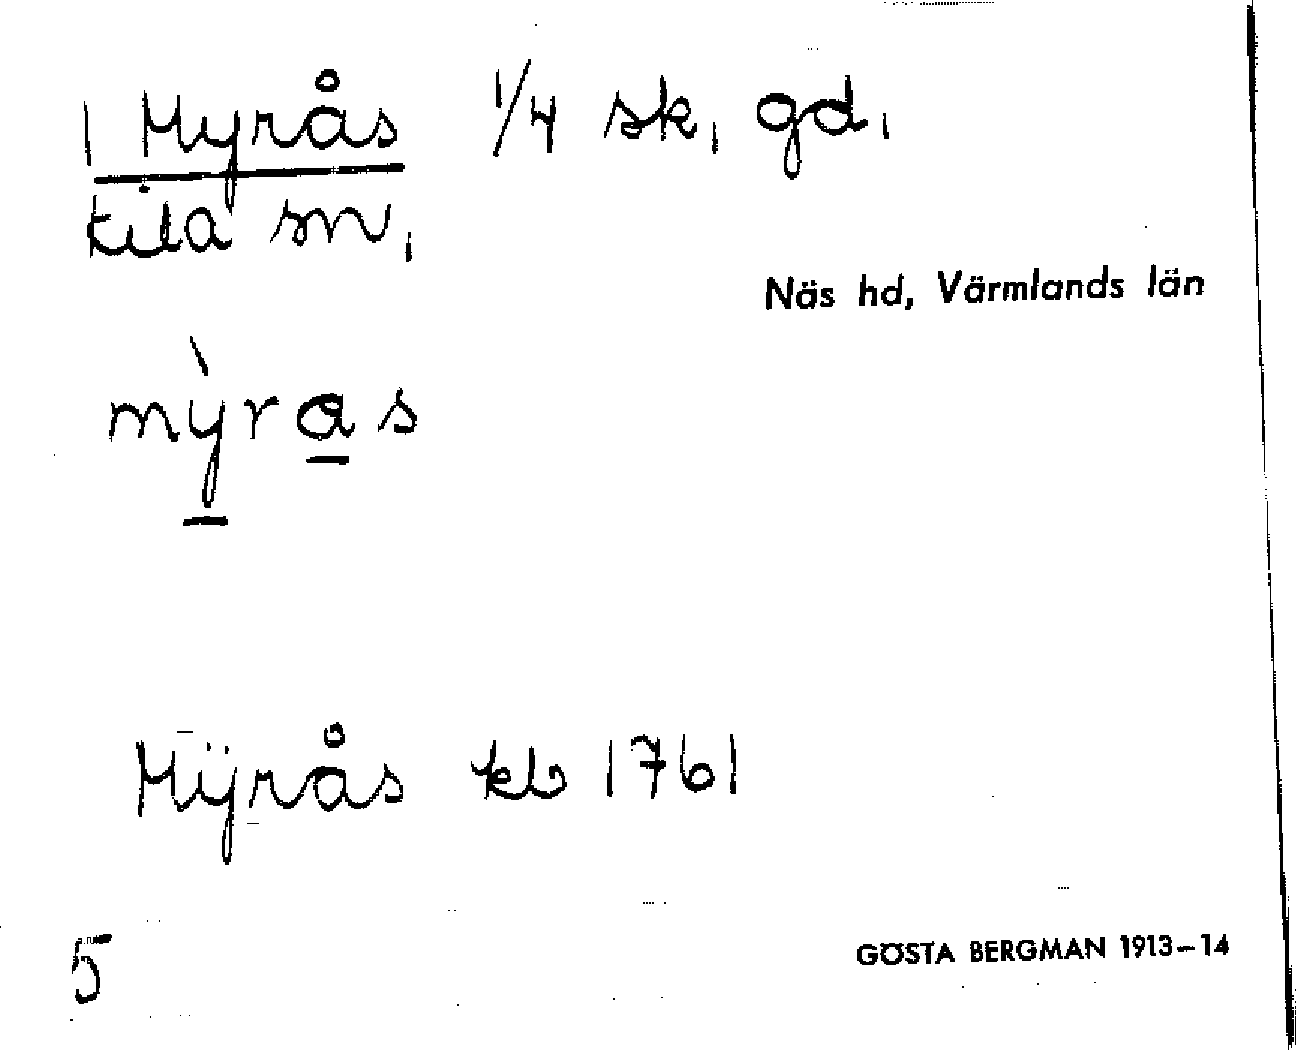 1 Myrås 1/4 sk, gd,
Kila sn,
Näs hd, Värmlands län
mỳras
Mÿrås kb 1761
5
GÖSTA BERGMAN 1913–14